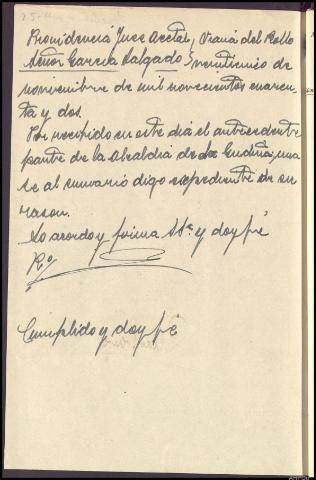 Providencia Juez Acctal, Viana del Bollo
Señor Garcia Salgado, veintiuno de
noviembre de mil novecientos cuaren-
ta y dos.
Por recibido en este dia el antecedente
parte de la Alcaldia de la Gudiña, una-
se al sumario digo expediente de su
razon.
Lo acordo y firma Sª y doy fé
Rº
Cumplido y doy fé